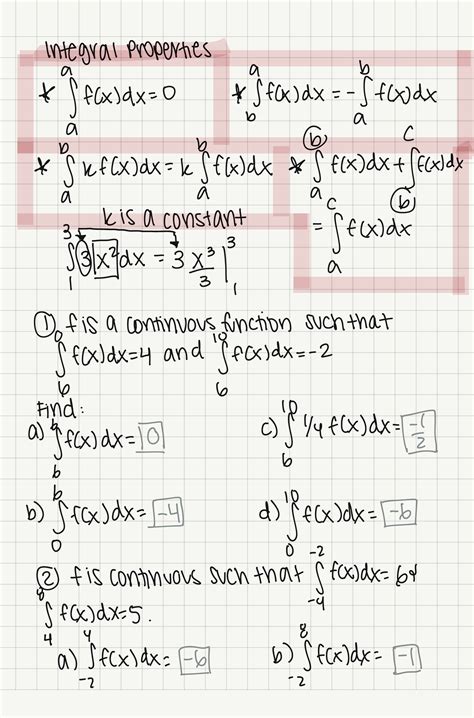 Integral Properties
* ∫_a^a f(x)dx = 0
* ∫_b^a f(x)dx = -∫_a^b f(x)dx
* ∫_a^b k f(x)dx = k ∫_a^b f(x)dx
* ∫_a^b f(x)dx + ∫_b^c f(x)dx
= ∫_a^c f(x)dx
k is a constant
∫_1^3 3 x² dx = 3 x³/3 |_1^3
① f is a continuous function such that
∫_6^0 f(x)dx=4 and ∫_6^10 f(x)dx=-2
Find:
a) ∫_6^6 f(x)dx = 0
c) ∫_6^10 1/4 f(x)dx = -1/2
b) ∫_0^6 f(x)dx = -4
d) ∫_0^10 f(x)dx = -6
② f is continuous such that ∫_-4^-2 f(x)dx = 6 &
∫_4^8 f(x)dx=5.
a) ∫_-2^4 f(x)dx = -6
b) ∫_-2^8 f(x)dx = -1